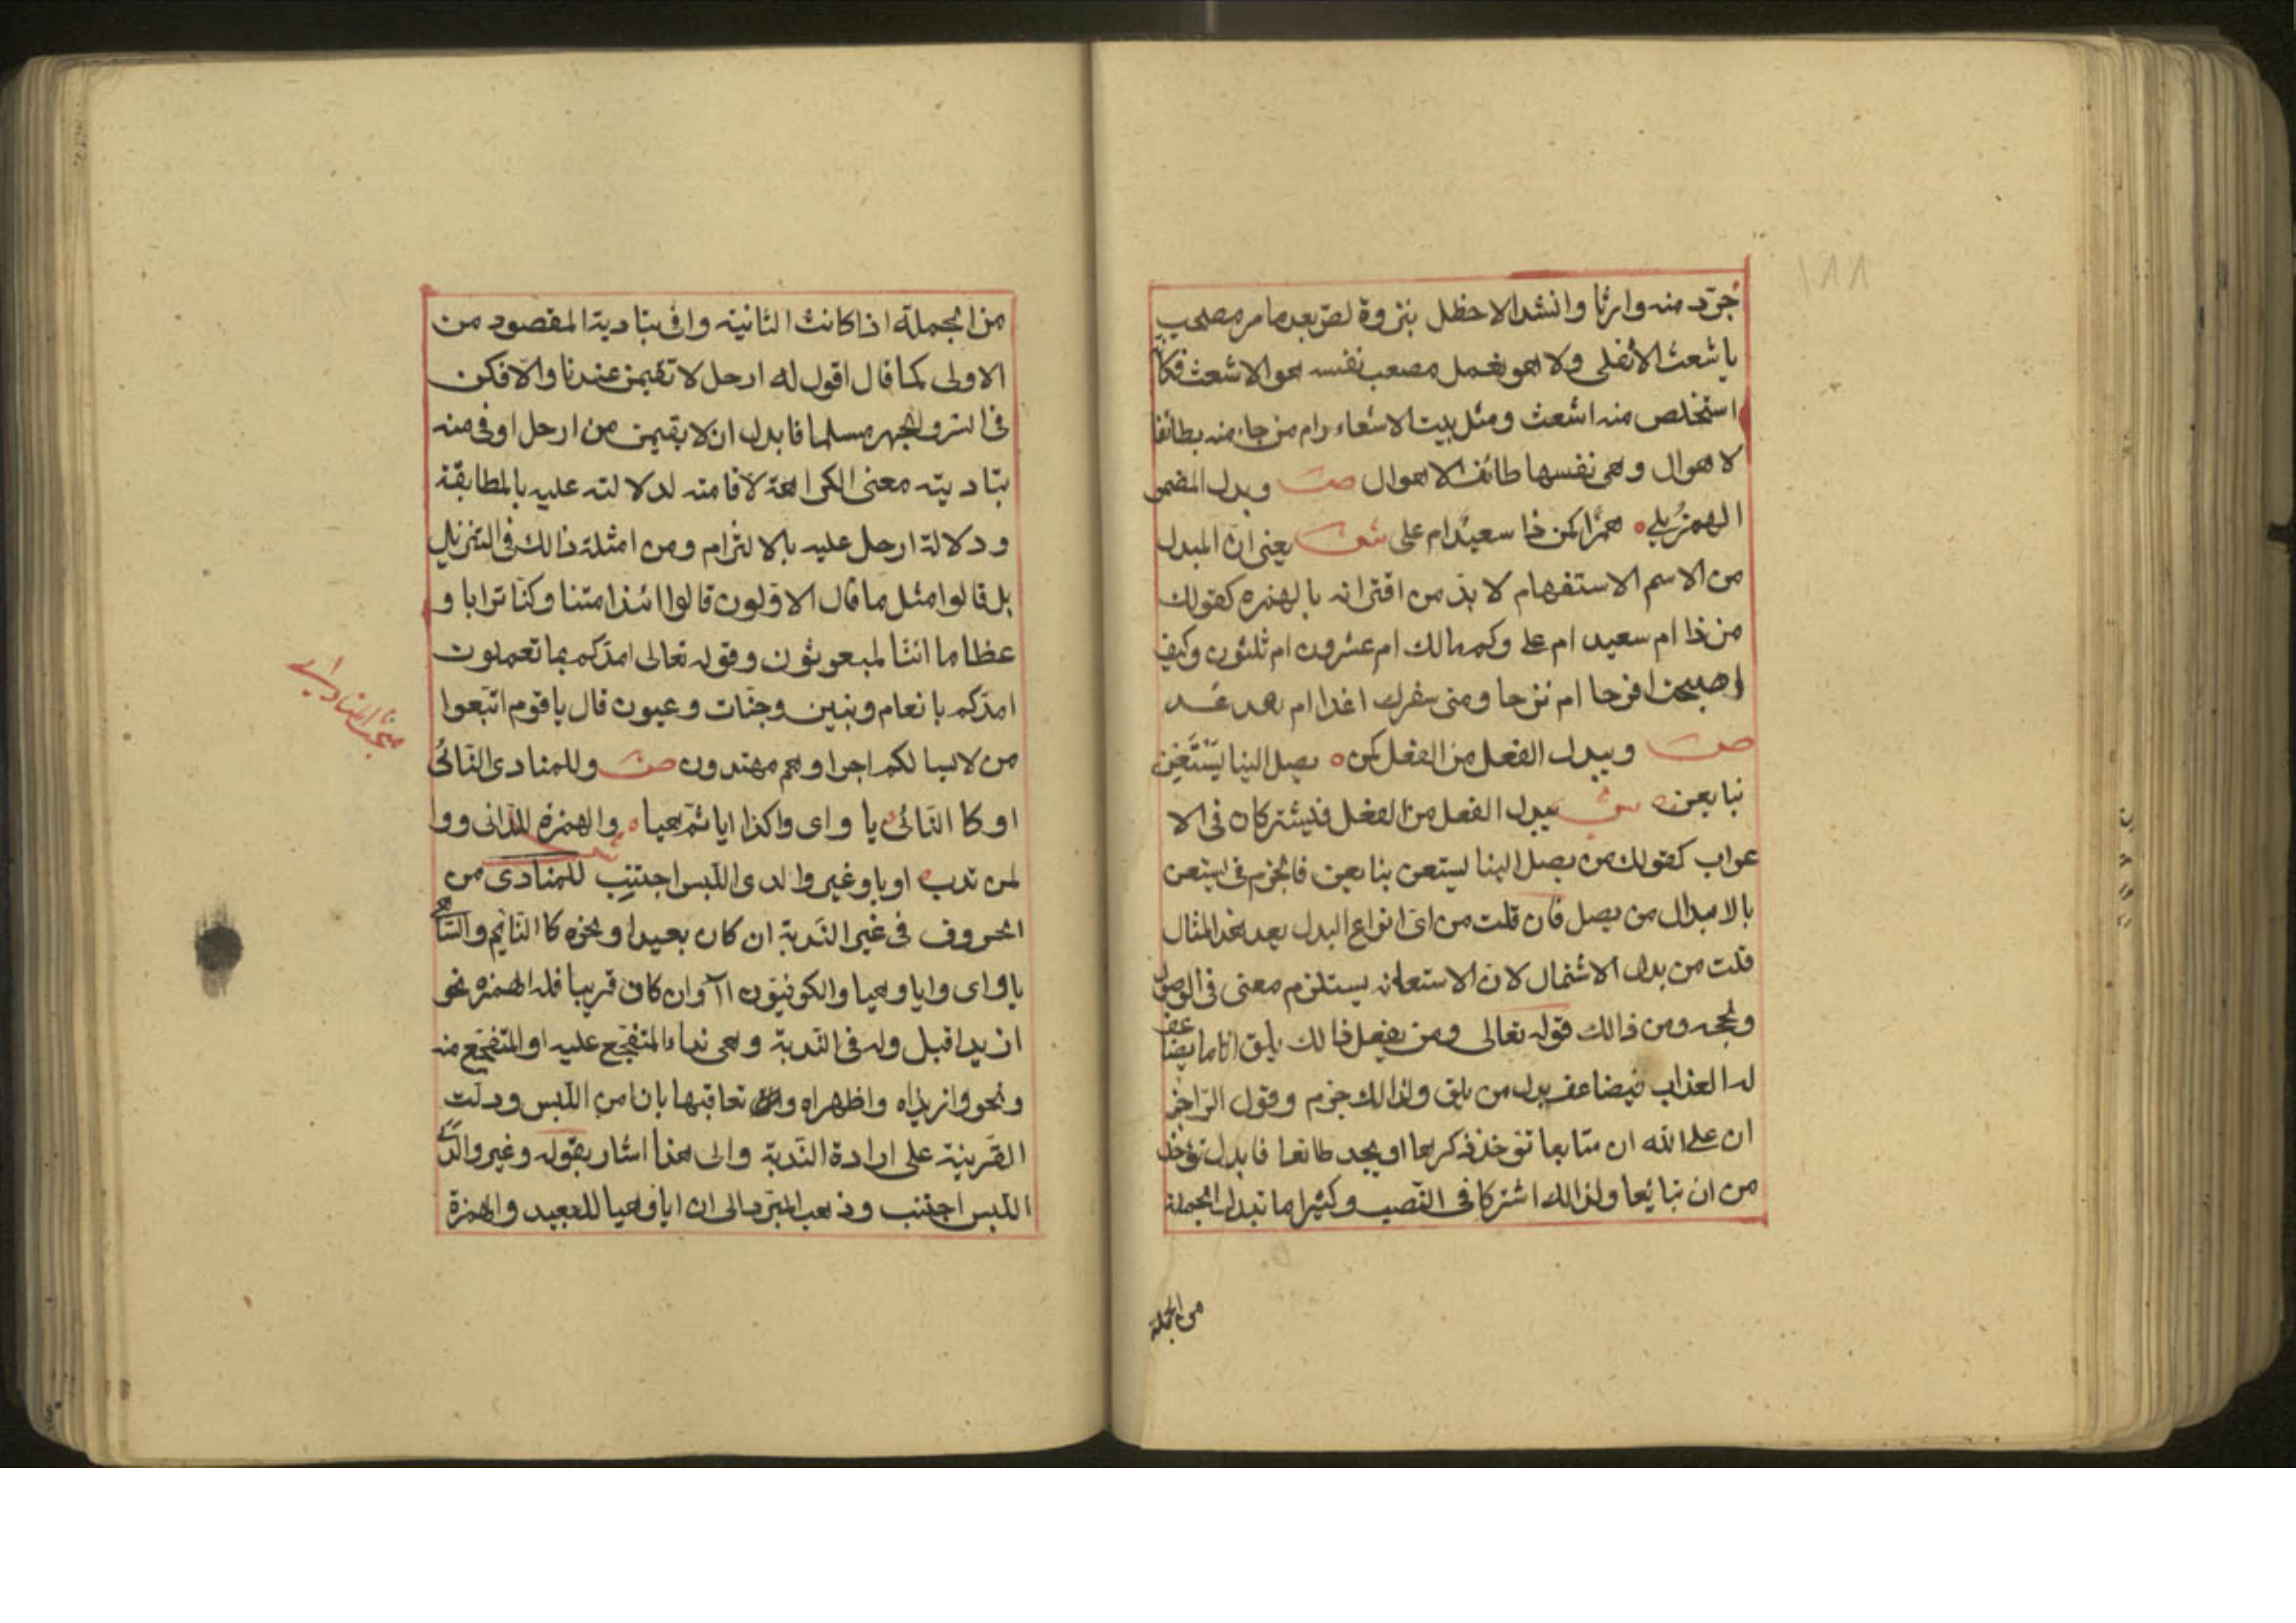 ١٨٨
جرّد منه وارثا وانشد الاخطل بنزوة لص بعد ما مر مصعب
باشعث لا يفلى ولا هو يغمل مصعب نفسه هو الاشعث فكانّه
استخلص منه اشعث ومثل بيت الاشعار رام من جاء منه بطائف
لاهوال وهى نفسها طائف الاهوال صـ وبدل المضمن
الهمز يلى همزا كمن ذا سعيد ام على شـ يعنى ان المبدل
من الاسم الاستفهام لابدّ من اقترانه بالهمزه كقولك
من ذا ام سعيد ام على وكم مالك ام عشرون ام ثلثون وكيف
اصبحت افرحا ام ترحا ومتى سفرك اغدا ام بعد غد
صـ ويبدل الفعل من الفعل كمن يصل الينا يَسْتَعِن
بنا يعن شـ يبدل الفعل من الفعل فيشتركان فى الا
عراب كقولك من يصل الينا يستعن بنا يعن فالجزم فى يستعن
بالابدال من يصل فان قلت من اىّ انواع البدل يعد هذا المثال
قلت من بدل الاشتمال لان الاستعانه يستلزم معنى فى الوصول
ونجحه ومن ذالك قوله تعالى ومن يفعل ذالك يلق اثاما يضاعف
له العذاب فيضاعف بدل من يلق ولذالك جزم وقول الراجز
ان على الله ان تبايعا تؤخذ كرها او تجىء طائعا فابدل تؤخذ
من ان تبايعا ولذالك اشتركا فى النصب وكثيرا ما تبدل الجملة
من الجملة
من الجملة اذا كانت الثانيه وافى بتادية المقصود من
الاولى كما قال اقول له ارحل لا تقيمن عندنا والّا فكن
فى السر والجهر مسلما فابدل ان لا يقيمن من ارحل اوفى منه
بتاديته معنى الكراهة لاقامته لدلالته عليه بالمطابقة
ودلالة ارحل عليه بالالتزام ومن امثلة ذالك فى التنزيل
بل قالوا مثل ما قال الاوّلون قالوا ائذا متنا وكنّا ترابا و
عظاما ائنّا لمبعوثون وقوله تعالى امدّكم بما تعملون
امدّكم بانعام وبنين وجنّات وعيون قال ياقوم اتّبعوا
من لا يسالكم اجرا وهم مهتدون صـ وللمنادى النّائى
او كالنّائى يا واى وا كذا ايا ثمّ هيا والهمزة للدانى ووا
لمن ندب او يا وغير وا لدى اللّبس اجتنب للمنادى من
الحروف فى غير النّدبة ان كان بعيدا ونحوه كالنّايم والسّاهى
يا واى وايا وهيا والكوفيّون اآ وان كان قريبا فله الهمزه نحو
ازيد اقبل وله فى النّدبة وهى نداء المتفجّع عليه او المتفجّع منه
ونحو وازيداه واظهراه وا تعاقبها يا ان امن اللّبس ودلّت
القرينة على ارادة النّدبة والى هذا اشار بقوله وغير وا لدى
اللبس اجتنب وذهب المبرّد الى ان ايا وهيا للبعيد والهمزة